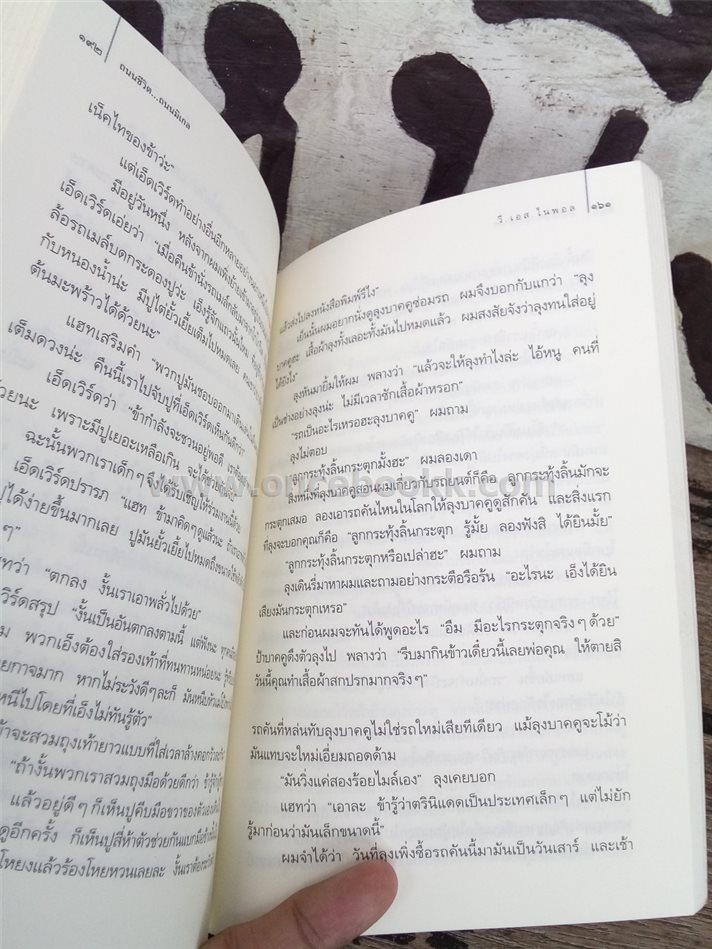 ๑๙๒
ถนนชีวิต...ถนนมิเกล
เน็คไทของข้าว่ะ"
แต่เอ็ดเวิร์ดทำอย่างอื่นอีกหลายอย่าง
มีอยู่วันหนึ่ง หลังจากผม
เอ็ดเวิร์ดเอ่ยว่า "เมื่อคืนข้านั่งรถเมล์
ล้อรถเมล์บดกระดองปูว่ะ เอ็งรู้จัก
กับหนองน้ำน่ะ มีปูไต่ยั้วเยี้ยเต็มไปหมดเลย
ต้นมะพร้าวได้ด้วยนะ"
แฮทเสริมคำ "พวกปูมันชอบออกมา
เต็มดวงน่ะ คืนนี้เราไปจับปูที่เอ็ดเวิร์ดเห็นกันดีกว่า"
เอ็ดเวิร์ดว่า "ข้ากำลังจะชวนอยู่พอดี
วยนะ เพราะมีปูเยอะเหลือเกิน
ฉะนั้นพวกเราเด็กๆ จึงได้รับเชิญให้ร่วมงานนี้ด้วย
เอ็ดเวิร์ดปรารภ "แฮท ข้ามาคิดๆ ดูแล้วนะ
ได้ง่ายขึ้นมากเลย ปูมันยั้วเยี้ยไปหมด
ๆ"
ทว่า "ตกลง งั้นเราเอาพลั่วไปด้วย"
วิร์ดสรุป "งั้นเป็นอันตกลงตามนี้
ม พวกเอ็งต้องใส่รองเท้าที่ทนทานหน่อยนะ
ยกาจมาก หากไม่ระวังดีๆ ละก็
หนีไปโดยที่เอ็งไม่ทันรู้ตัว"
จะสวมถุงเท้ายาวแบบที่ใส่เวลาล้างคอกวัว
"ถ้างั้นพวกเราสวมถุงมือด้วยดีกว่า
แล้วอยู่ดีๆ ก็เห็นปูคีบมือขวาของตัวเอง
ดูอีกครั้ง ก็เห็นปูสี่ห้าตัวช่วยกันแบกมือข้างนั้น
โหยงแล้วร้องโหยหวนเลยละ
วี เอส ไนพอล
๑๖๑
แล้วส่งไปลงหนังสือพิมพ์วีไง"
เย็นนั้นผมอยากนั่งดูลุงบาคคูซ่อมรถ ผมจึงบอกกับแกว่า "ลุง
บาคคูฮะ เสื้อผ้าลุงทั้งเลอะทั้งมันไปหมดแล้ว ผมสงสัยจังว่าลุงทนใส่อยู่
ได้ยังไง"
ลุงหันมายิ้มให้ผม พลางว่า "แล้วจะให้ลุงทำไงล่ะ ไอ้หนู คนที่
เป็นช่างอย่างลุงน่ะ ไม่มีเวลาซักเสื้อผ้าหรอก"
"รถเป็นอะไรเหรอฮะลุงบาคคู" ผมถาม
ลุงไม่ตอบ
"ลูกกระทุ้งลิ้นกระตุกมั้งฮะ" ผมลองเดา
สิ่งหนึ่งที่ลุงบาคคูสอนผมเกี่ยวกับรถยนต์ก็คือ ลูกกระทุ้งลิ้นมักจะ
กระตุกเสมอ ลองเอารถคันไหนในโลกให้ลุงบาคคูดูสักคัน และสิ่งแรก
ที่ลุงจะบอกคุณก็คือ "ลูกกระทุ้งลิ้นกระตุก รู้มั้ย ลองฟังสิ ได้ยินมั้ย"
"ลูกกระทุ้งลิ้นกระตุกหรือเปล่าฮะ" ผมถาม
ลุงเดินรี่มาหาผมและถามอย่างกระตือรือร้น "อะไรนะ เอ็งได้ยิน
เสียงมันกระตุกเหรอ"
และก่อนผมจะทันได้พูดอะไร "อืม มีอะไรกระตุกจริงๆ ด้วย"
ป้าบาคคูดึงตัวลุงไป พลางว่า "รีบมากินข้าวเดี๋ยวนี้เลยพ่อคุณ ให้ตายสิ
วันนี้คุณทำเสื้อผ้าสกปรกมากจริงๆ"
รถคันที่หล่นทับลุงบาคคูไม่ใช่รถใหม่เสียทีเดียว แม้ลุงบาคคูจะโม้ว่า
มันแทบจะใหม่เอี่ยมถอดด้าม
"มันวิ่งแค่สองร้อยไมล์เอง" ลุงเคยบอก
แฮทว่า "เอาละ ข้ารู้ว่าตรินิแดดเป็นประเทศเล็กๆ แต่ไม่ยัก
รู้มาก่อนว่ามันเล็กขนาดนี้"
ผมจำได้ว่า วันที่ลุงเพิ่งซื้อรถคันนี้มามันเป็นวันเสาร์ และเช้า